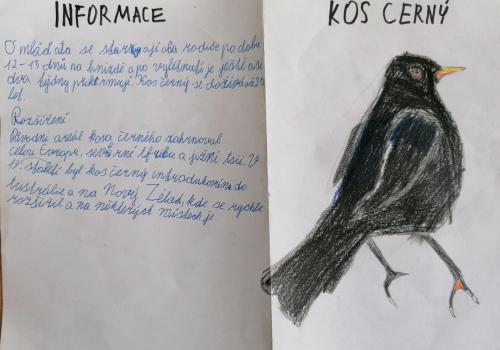 INFORMACE
O mláďata se starají oba rodiče po dobu
12-15 dnů na hnízdě a po vylétnutí je ještě asi
dva týdny přikrmují. Kos černý se dožívá
let.
Rozšíření
Původní areál kosa černého zahrnoval
celou Evropu, severní Afriku a jižní Asii. V
19. století byl kos černý introdukován do
Austrálie a na Nový Zéland, kde se rychle
rozšířil a na některých místech je
KOS CERNÝ